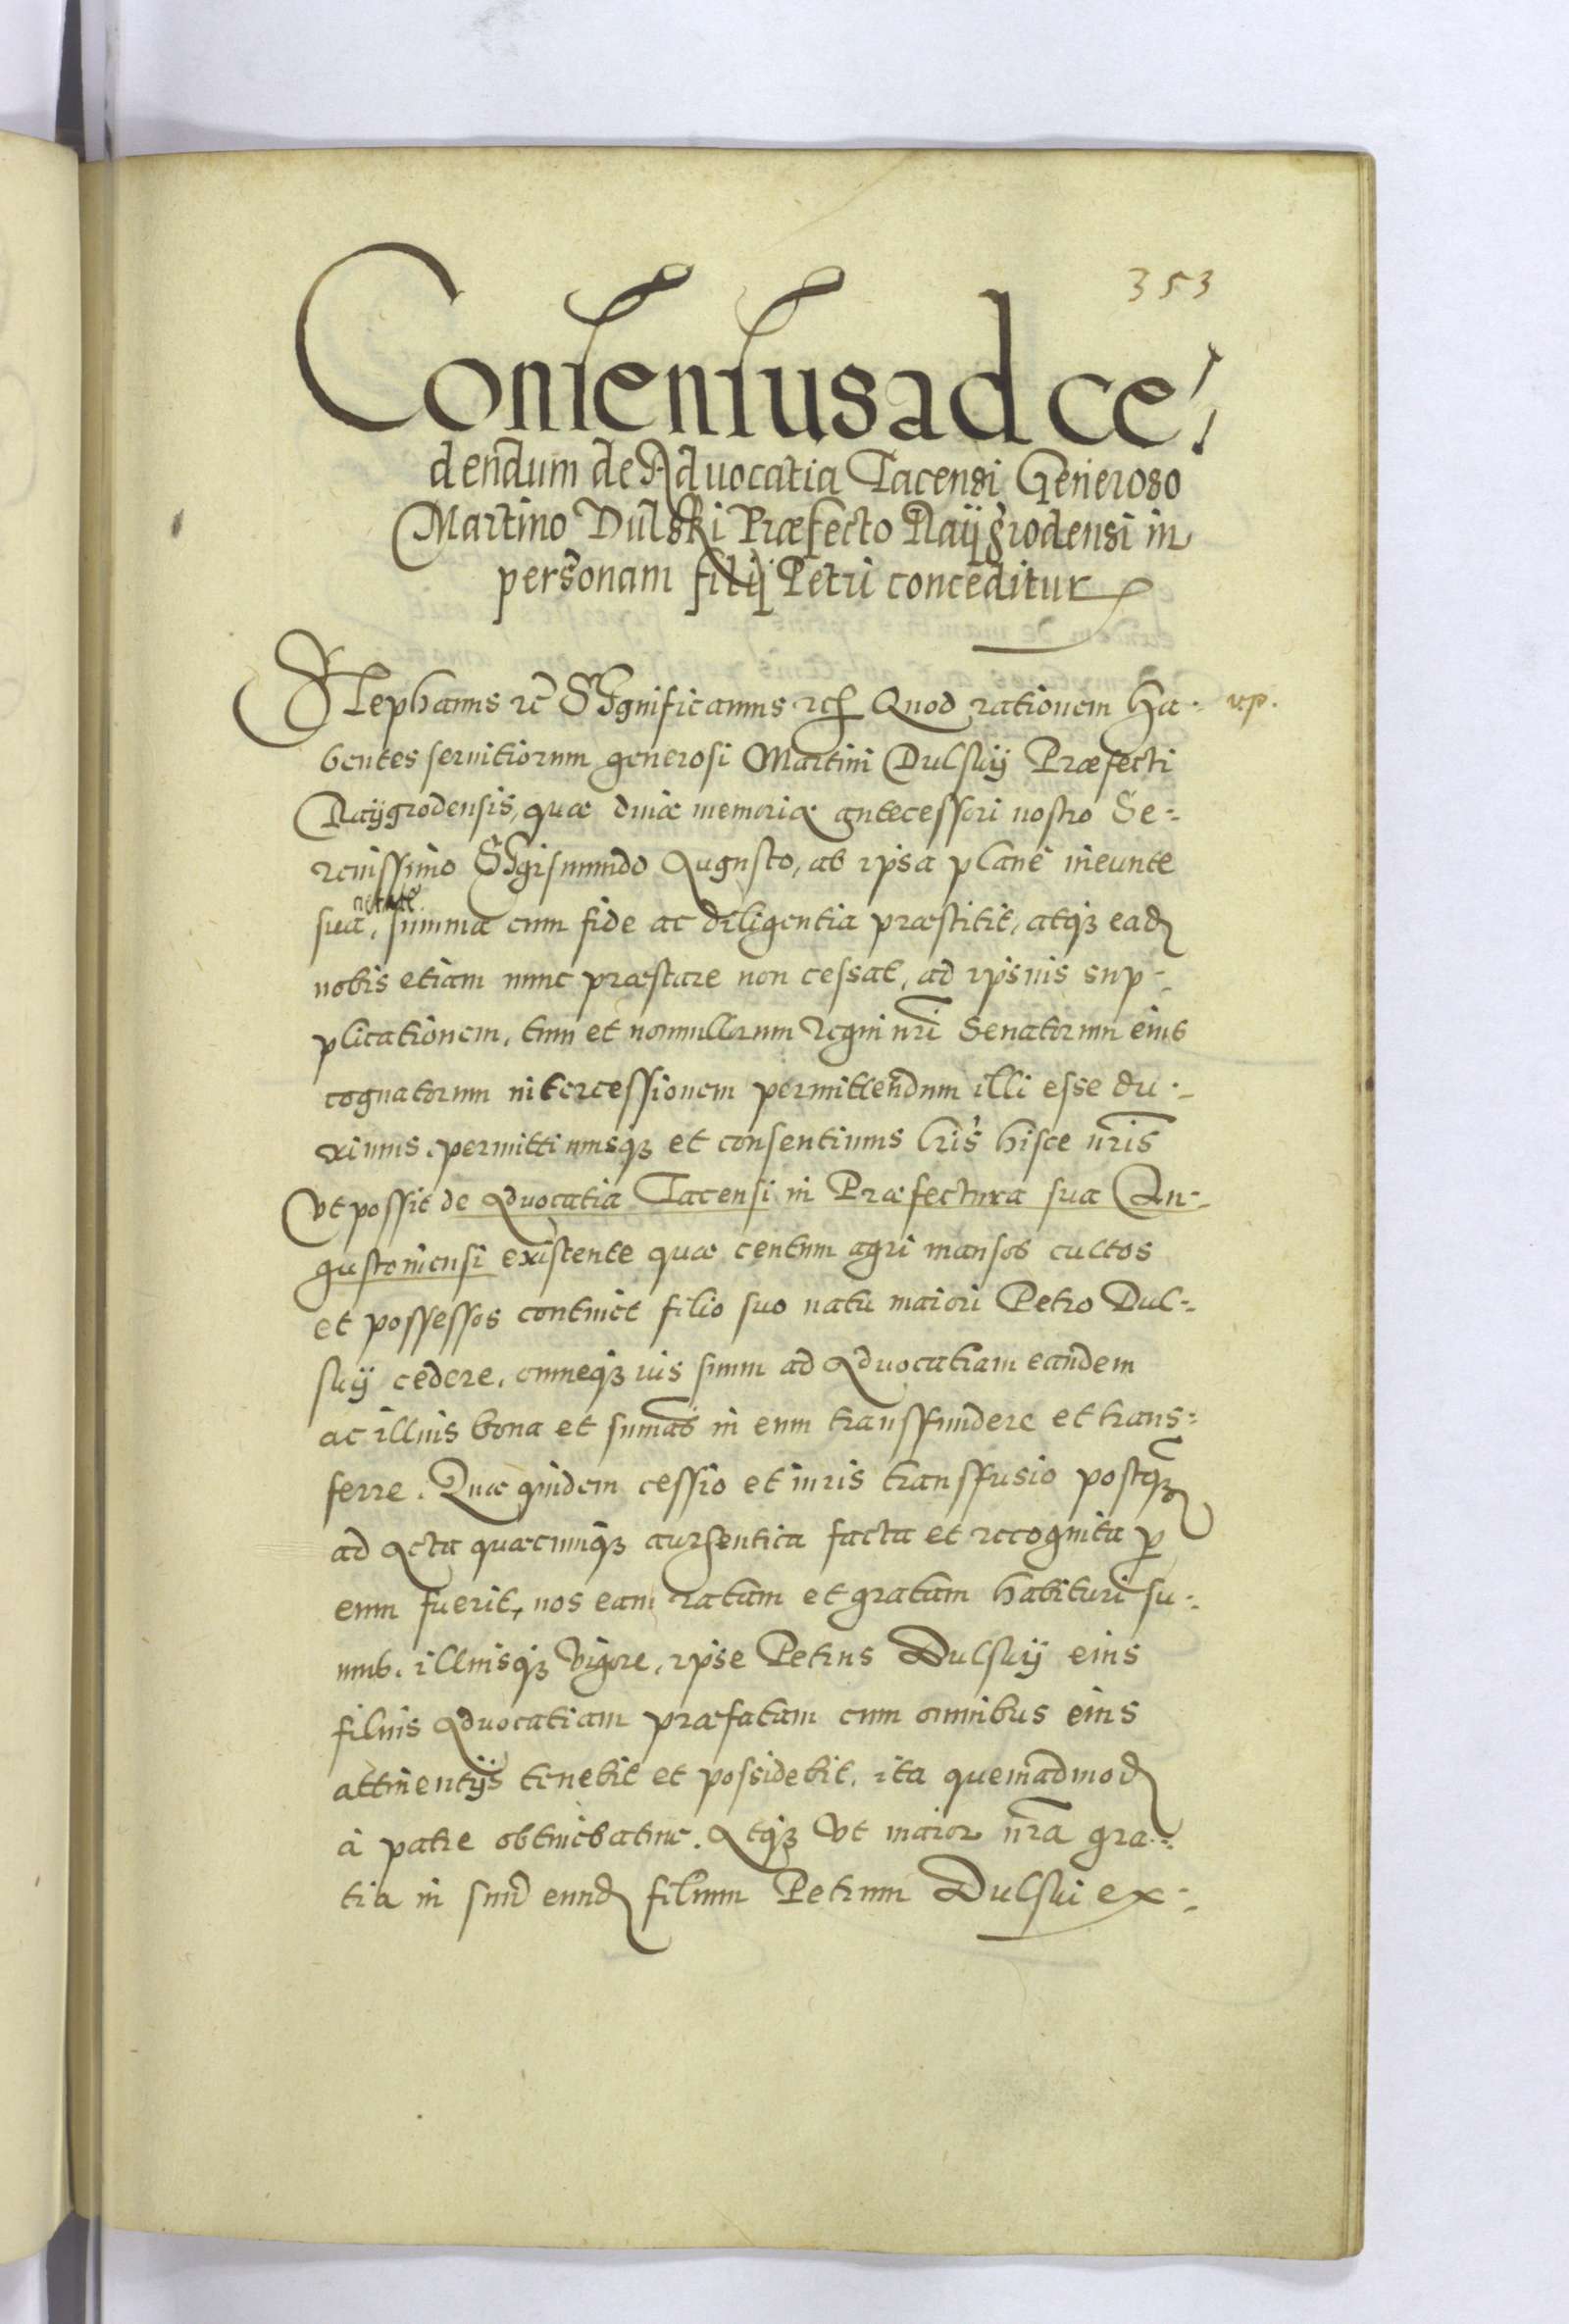 353
Contentus ad ce-
dendum de Advocatia Tacensi Generoso
Martino Dulski Præfecto Raÿgrodensi in
personam filÿ Petri conceditur
Stephanus rc̄ Significamus rcꝭ Quod rationem ha- rp.
bentes servitiorum generosi Martini Dulskÿ Præfecti
Raÿgrodensis, quæ divæ memoriæ antecessori nostro Se-
renissimo Sigismundo Augusto, ab ipsa plane ineunte
ætate
sua, summa cum fide ac diligentia præstitit, atqꝫ eadꝫ
nobis etiam nunc præstare non cessat, ad ipsius sup-
plicationem, tum et nonnullorum Regni nr̄i Senatorum eius
cognatorum intercessionem permittendum illi esse du-
ximus, permittimusqꝫ et consentimus lr̄is hisce nr̄is
Vt possit de Advocatia Tacensi in Præfectura sua Au-
gustoviensi existente quæ centum agri mansos cultos
et possessos continet filio suo natu maiori Petro Dul-
skÿ cedere, omneqꝫ ius suum ad Advocatiam eandem
ac illius bona et sum̄as in eum transffundere et trans-
ferre. Quæ quidem cessio et iuris transffusio postqꝫ
ad Acta quæcunqꝫ authentica facta et recognita ꝑ
eum fuerit, nos eam ratam et gratam habituri su-
mus. illiusqꝫ vigore, ipse Petrus Dulskÿ eius
filius Advocatiam præfatam cum omnibus eius
attinentÿs tenebit et possidebit, ita quemadmodꝫ
à patre obtinebatur. Atqꝫ Vt maior nr̄a gra-
tia in suū eundꝫ filium Petrum Dulski ex-